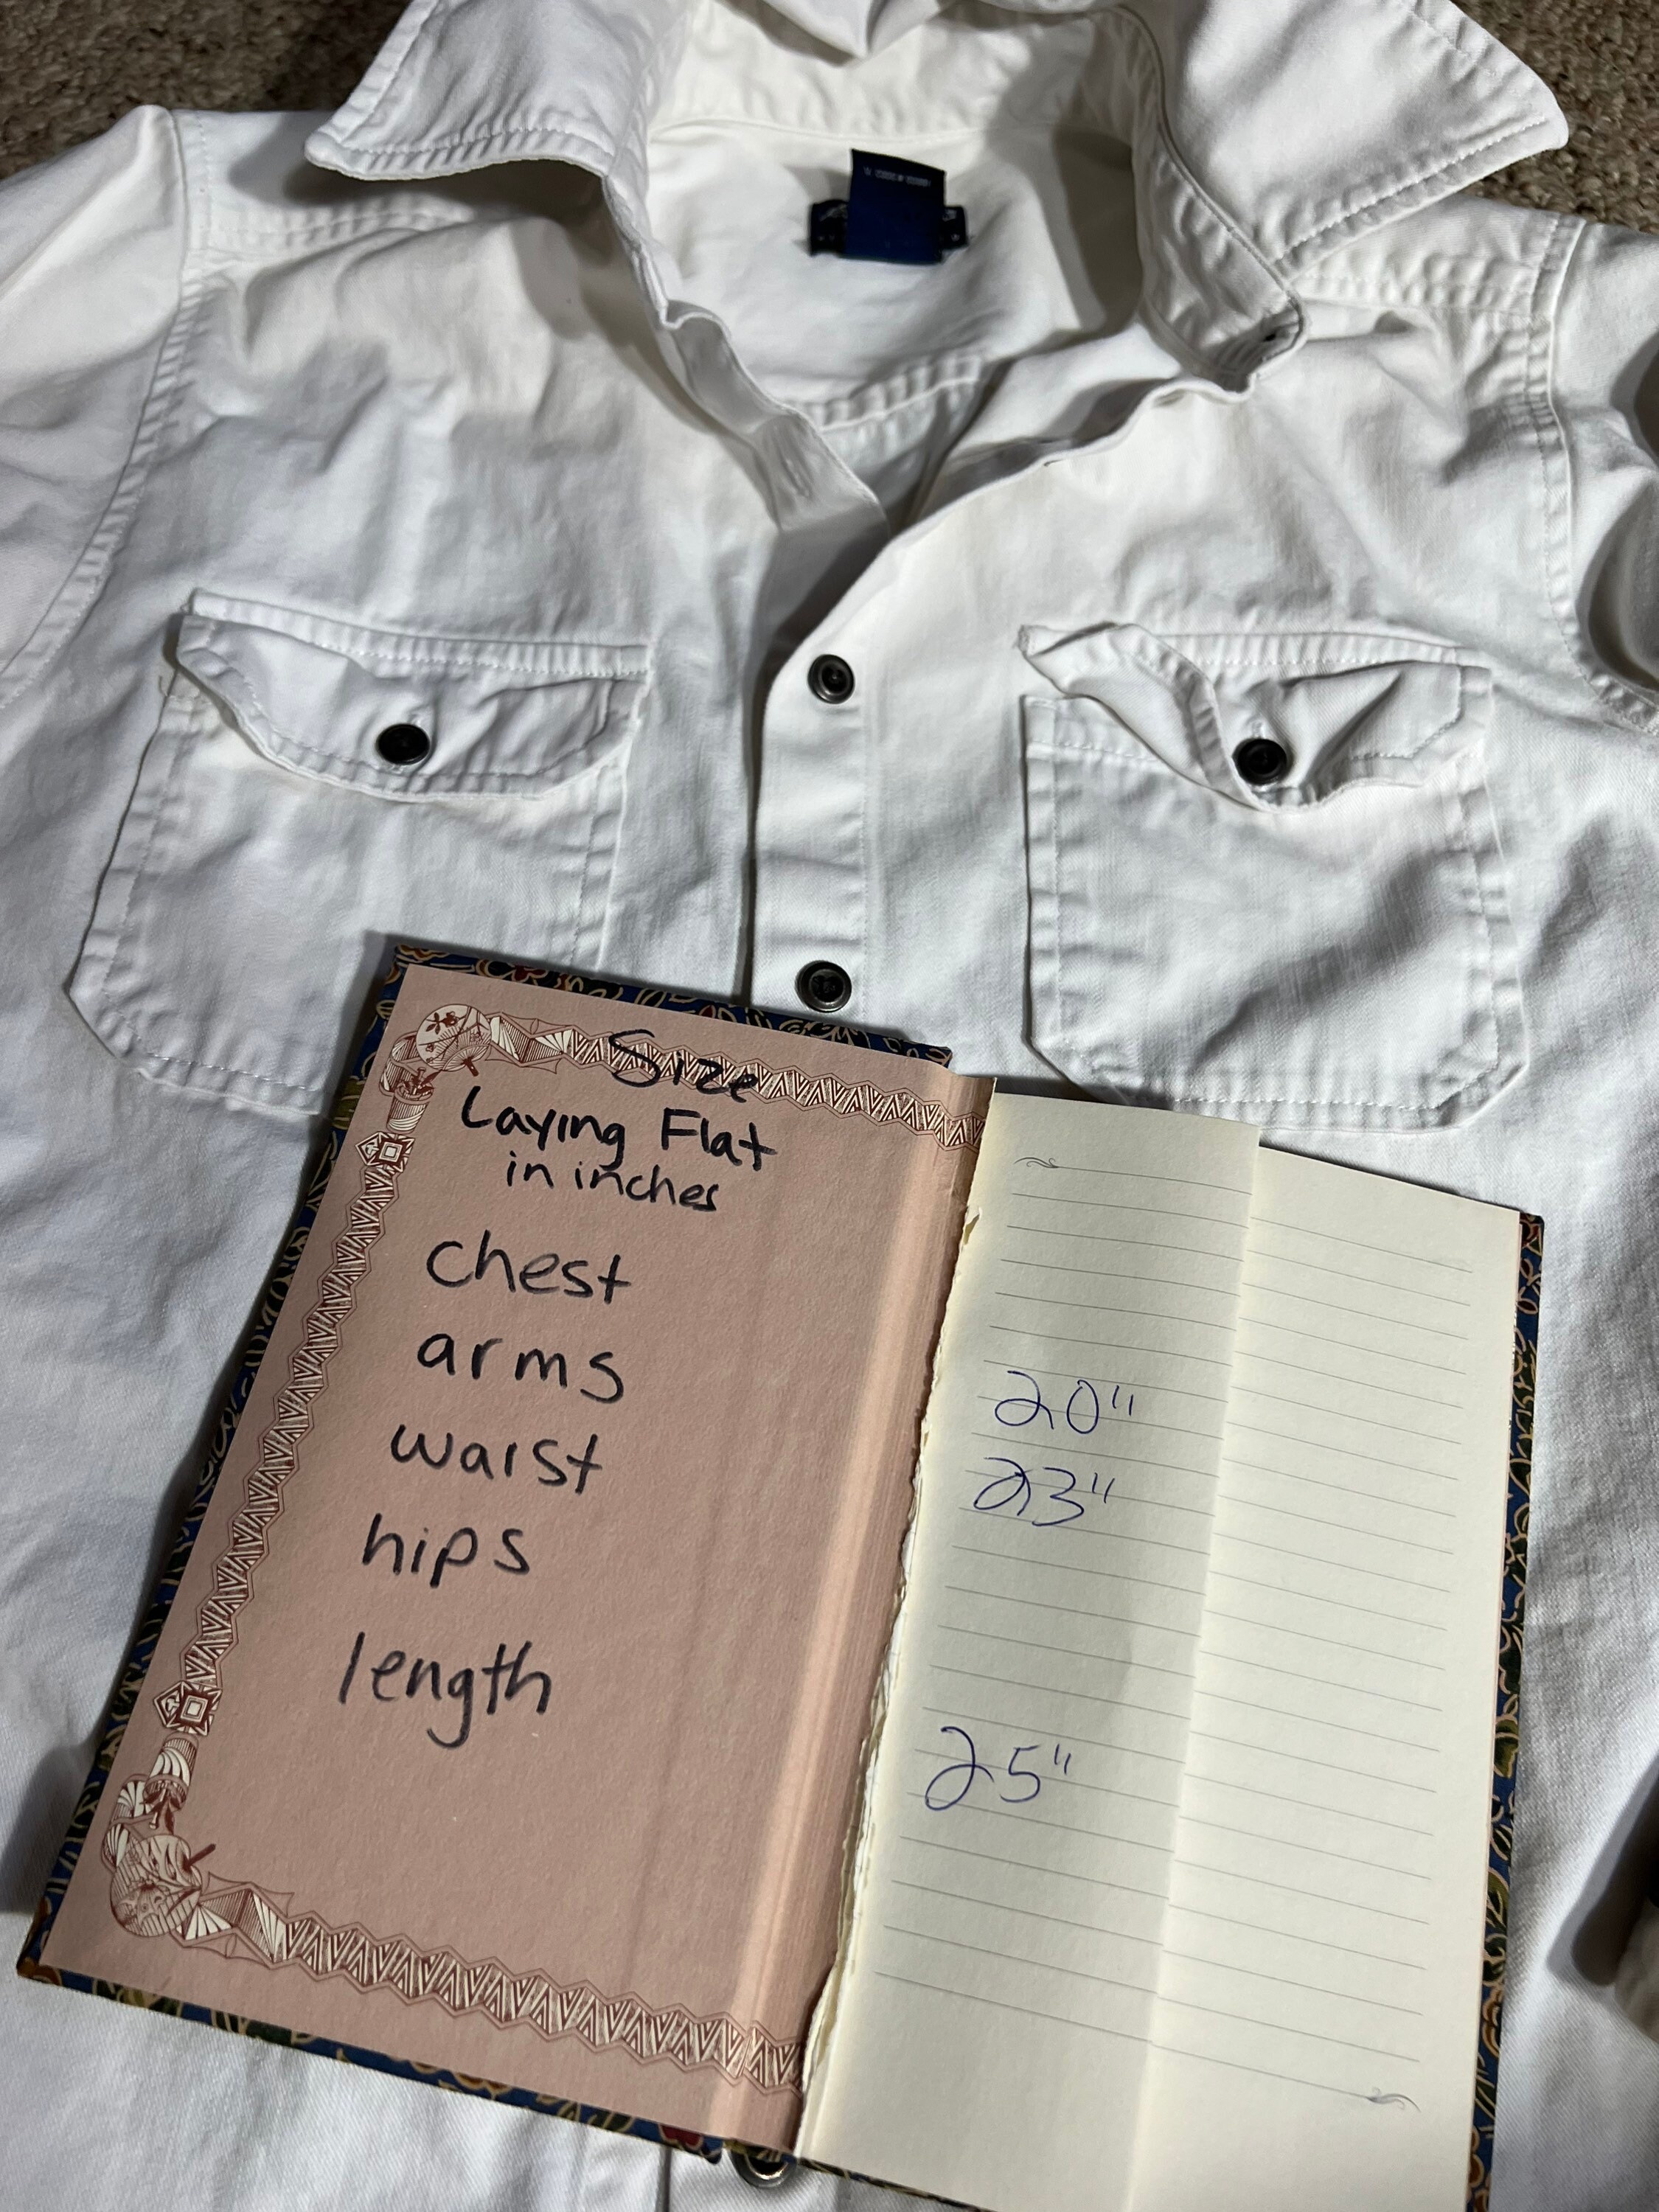 Size
Laying Flat
in inches
chest
arms
waist
hips
length
20"
23"
25"